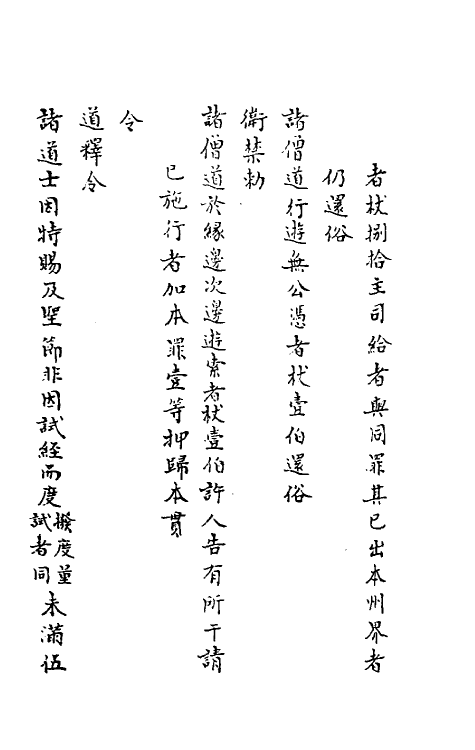 者杖捌拾主司給者與同罪其已出本州界者
仍還俗
諸僧道行遊無公憑者杖壹伯還俗
衛禁勅
諸僧道於緣邊次邊遊索者杖壹伯許人告有所干請
已施行者加本罪壹等押歸本貫
令
道釋令
諸道士因特賜及聖節非因試經而度撥度量試者同未滿伍